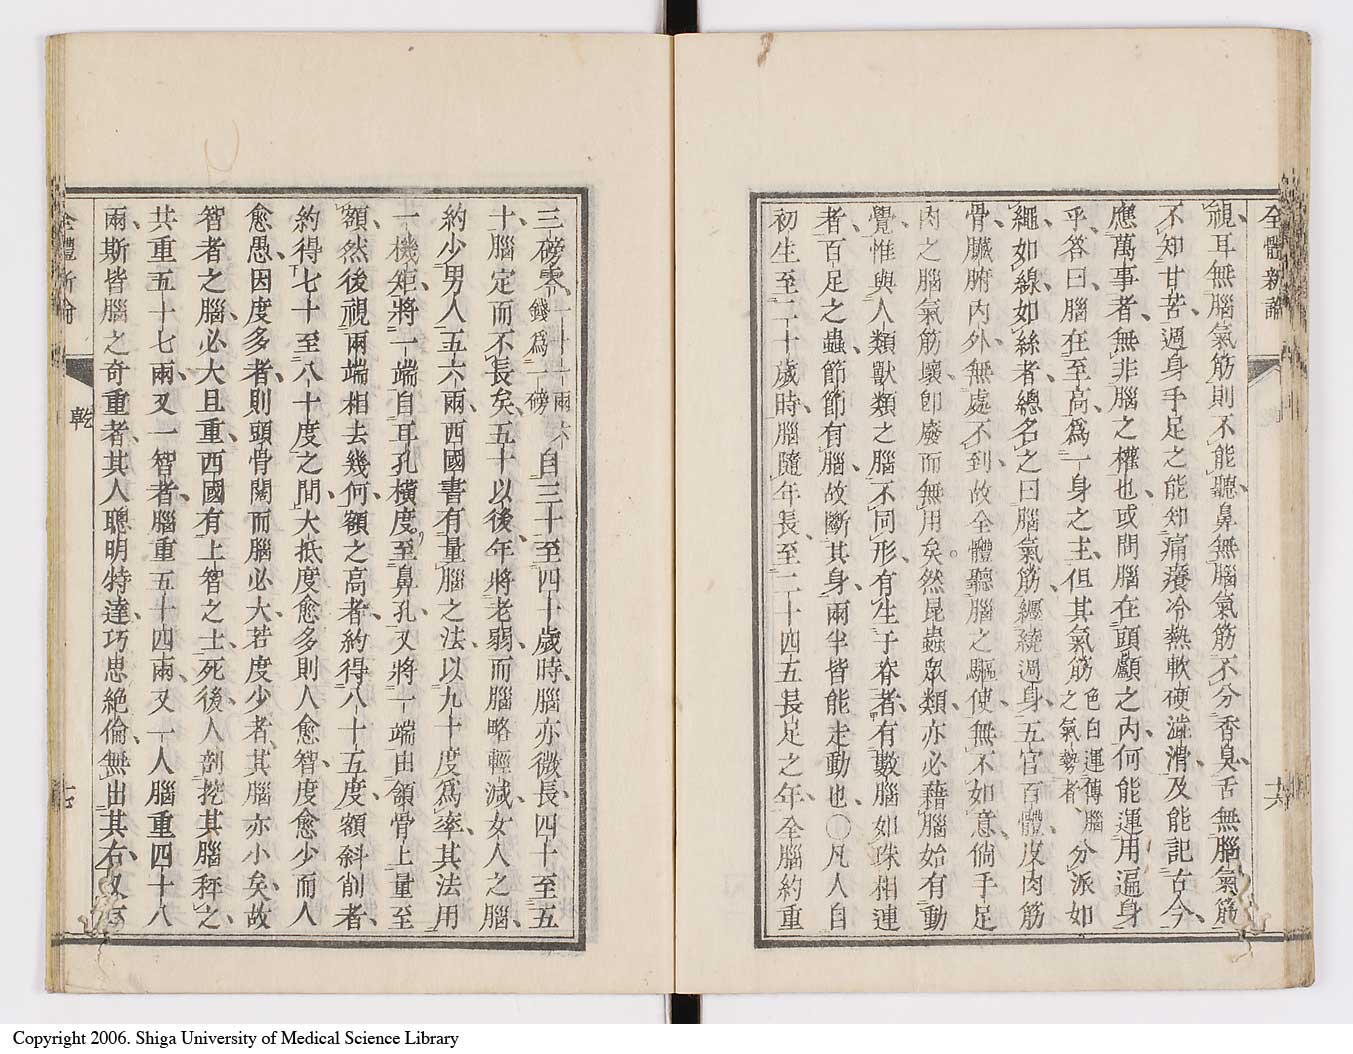 全體新論
十六
視、耳無腦氣筋則不能聽、鼻無腦氣筋不分香臭、舌無腦氣筋
不知甘苦、週身手足之能知痛癢冷熱軟硬澁滑、及能記古今、
應萬事者、無非腦之權也、或問腦在頭顱之內、何能運用遍身
乎、答曰、腦在至高、爲一身之主、但其氣筋色白運傳腦之氣勢者分派如
繩如線如絲者、總名之曰腦氣筋、纏繞週身、五官百體、皮肉筋
骨、臟腑內外、無處不到、故全體聽腦之驅使、無不如意、倘手足
肉之腦氣筋壞、卽廢而無用矣、然昆蟲眾類、亦必藉腦始有動
覺、惟與人類獸類之腦不同形、有生于脊者、有數腦如珠相連
者、百足之蟲、節節有腦、故斷其身、兩半皆能走動也、○凡人自
初生至二十歲時、腦隨年長、至二十四五長足之年、全腦約重
三磅零、十二兩六錢爲一磅自三十至四十歲時、腦亦微長、四十至五
十、腦定而不長矣、五十以後、年將老弱、而腦略輕減、女人之腦、
約少男人五六兩、西國書有量腦之法、以九十度爲率、其法用
一機矩、將一端自耳孔橫度至鼻孔、又將一端由頷骨上量至
額、然後視兩端相去幾何、額之高者、約得八十五度、額斜削者、
約得七十至八十度之間、大抵度愈多則人愈智、度愈少而人
愈愚、因度多者、則頭骨闊而腦必大、若度少者、其腦亦小矣、故
智者之腦、必大且重、西國有上智之士、死後、人剖挖其腦秤之、
共重五十七兩、又一智者、腦重五十四兩、又一人腦重四十八
兩、斯皆腦之奇重者、其人聰明特達、巧思絶倫、無出其右、又
全體新論
乾
十七
Copyright 2006. Shiga University of Medical Science Library